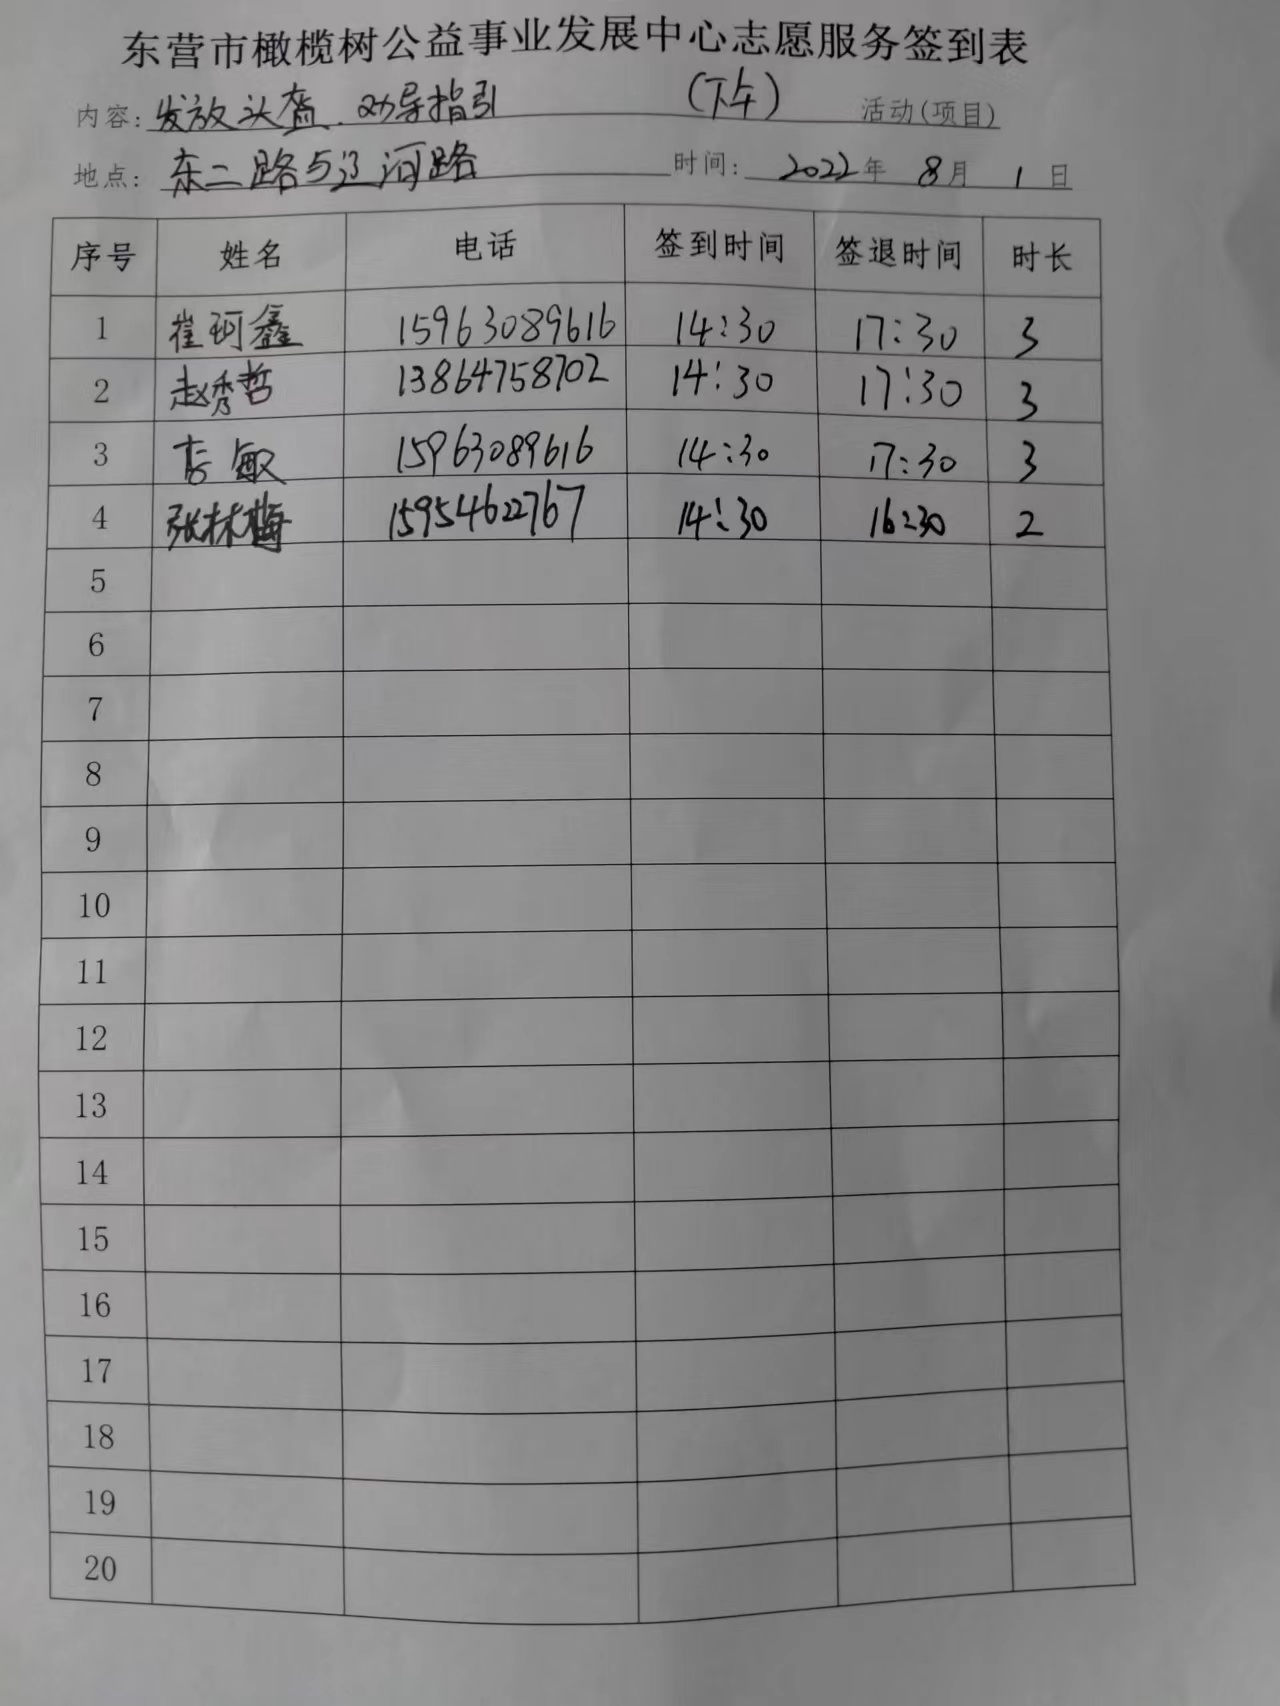 东营市橄榄树公益事业发展中心志愿服务签到表
内容: 发放头盔、劝导指引 (下午) 活动(项目)
地点: 东二路与辽河路 时间: 2022年 8月 1日
序号 姓名 电话 签到时间 签退时间 时长
1 崔珂鑫 15963089616 14:30 17:30 3
2 赵秀哲 13864758702 14:30 17:30 3
3 李敏 15963089616 14:30 17:30 3
4 张林梅 15954622767 14:30 16:30 2
5
6
7
8
9
10
11
12
13
14
15
16
17
18
19
20